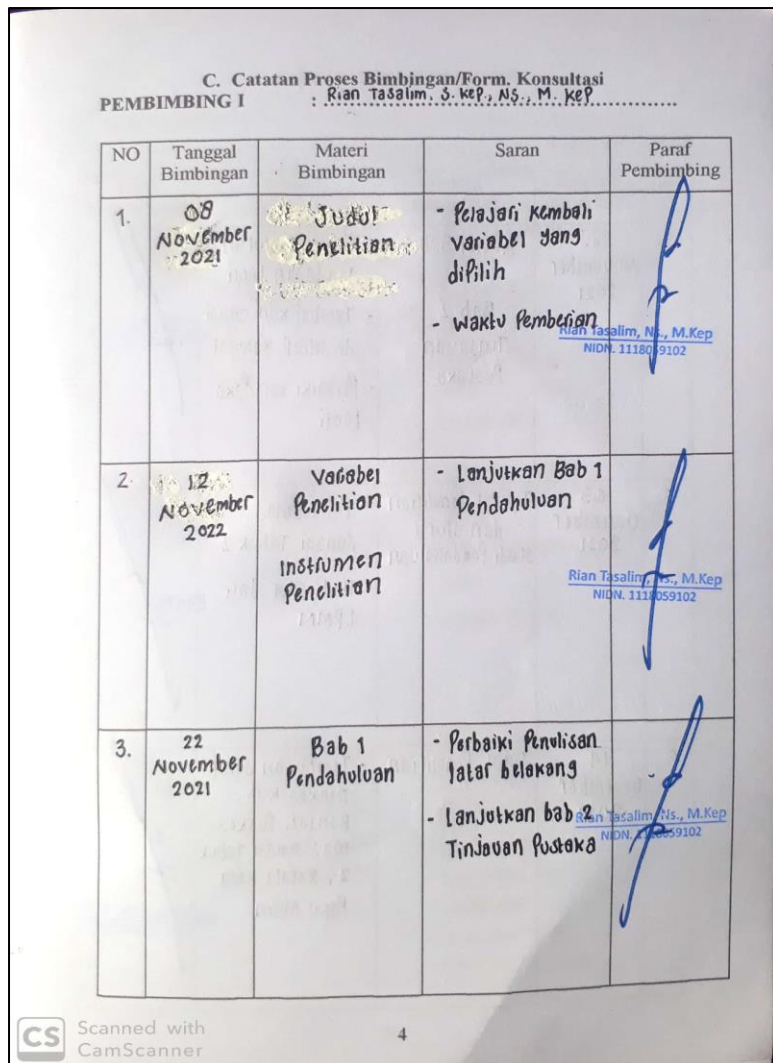 C. Catatan Proses Bimbingan/Form. Konsultasi
PEMBIMBING I : Rian Tasalim, S. Kep., NS., M. Kep
NO
Tanggal Bimbingan
Materi Bimbingan
Saran
Paraf Pembimbing
1.
08
November
2021
Judul
Penelitian
- Pelajari Kembali
variabel yang
dipilih
- Waktu Pemberian
Rian Tasalim, Ns., M.Kep
NIDN. 1118059102
2.
12
November
2022
Variabel
Penelitian
Instrumen
Penelitian
- Lanjutkan Bab 1
Pendahuluan
Rian Tasalim, Ns., M.Kep
NIDN. 1118059102
3.
22
November
2021
Bab 1
Pendahuluan
- Perbaiki Penulisan
latar belakang
- Lanjutkan bab 2
Tinjauan Pustaka
Rian Tasalim, Ns., M.Kep
NIDN. 1118059102
4
CS
Scanned with
CamScanner